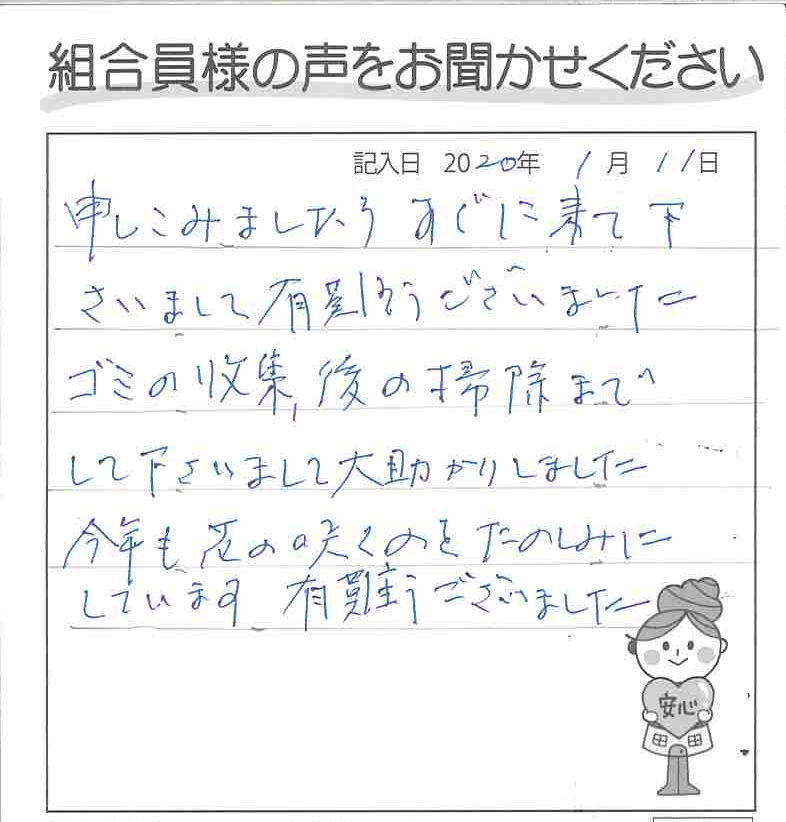 組合員様の声をお聞かせください
記入日 2020年 1月 11日
申しこみましたら すぐに来て 下
さいまして 有難うございました
ゴミの収集,後の掃除まで
して下さいまして大助かりしました
今年も花の咲くのをたのしみに
しています 有難うございました
安心